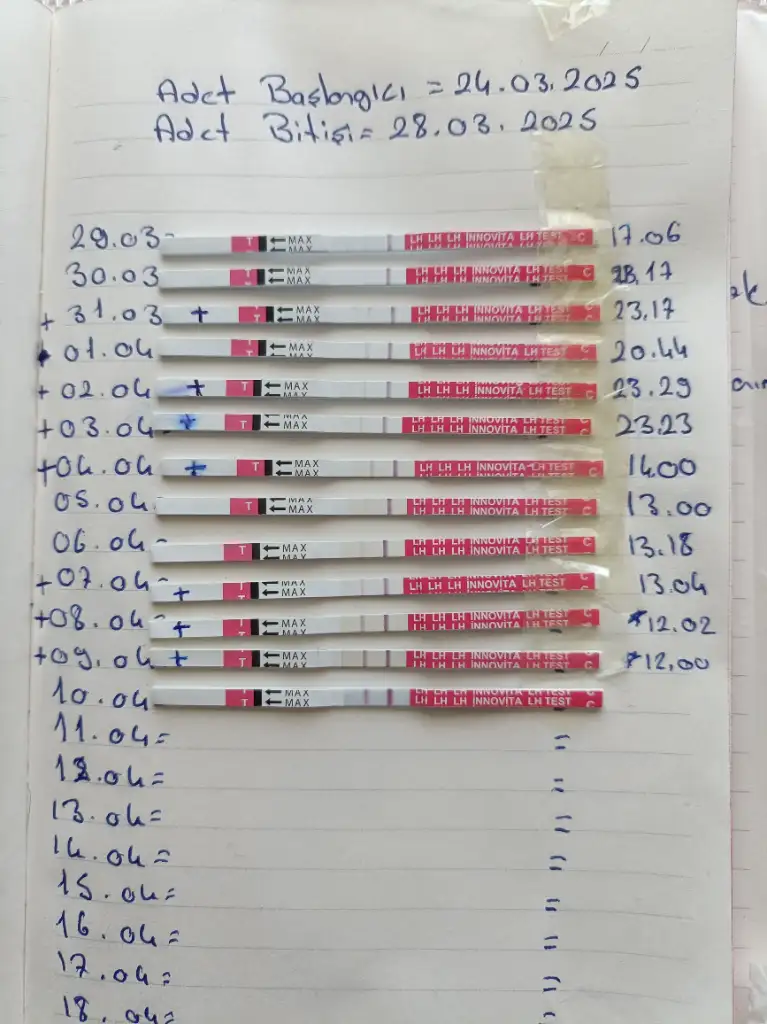 Adet Başlangıcı = 24.03.2025
Adet Bitişi = 28.03.2025
29.03- T MAX MAX LH LH LH INNOVITA LH TEST C 17.06
30.03 T MAX MAX LH LH LH INNOVITA LH TEST C 23,17
+ 31.03 + T MAX MAX LH LH LH INNOVITA LH TEST C 23,17
01.04 T MAX MAX LH LH LH INNOVITA LH TEST C 20.44
+ 02.04 + T MAX MAX LH LH LH INNOVITA LH TEST C 23.29
+03.04 + T MAX MAX LH LH LH INNOVITA LH TEST C 23.23
+04.04 + T MAX MAX LH LH LH INNOVITA LH TEST C 14.00
05.04 T MAX MAX LH LH LH INNOVITA LH TEST C 13.00
06.04- T MAX MAX LH LH LH INNOVITA LH TEST C 13.18
+07.04- + T MAX MAX LH LH LH INNOVITA LH TEST C 13.04
+08.04- + T MAX MAX LH LH LH INNOVITA LH TEST C *12.02
+09.04 + T MAX MAX LH LH LH INNOVITA LH TEST C *12,00
10.04 T MAX MAX LH LH LH INNOVITA LH TEST C
11.04= =
12.04= =
13.04= =
14.04= =
15.04= =
16.04= =
17.04= =
18.04=